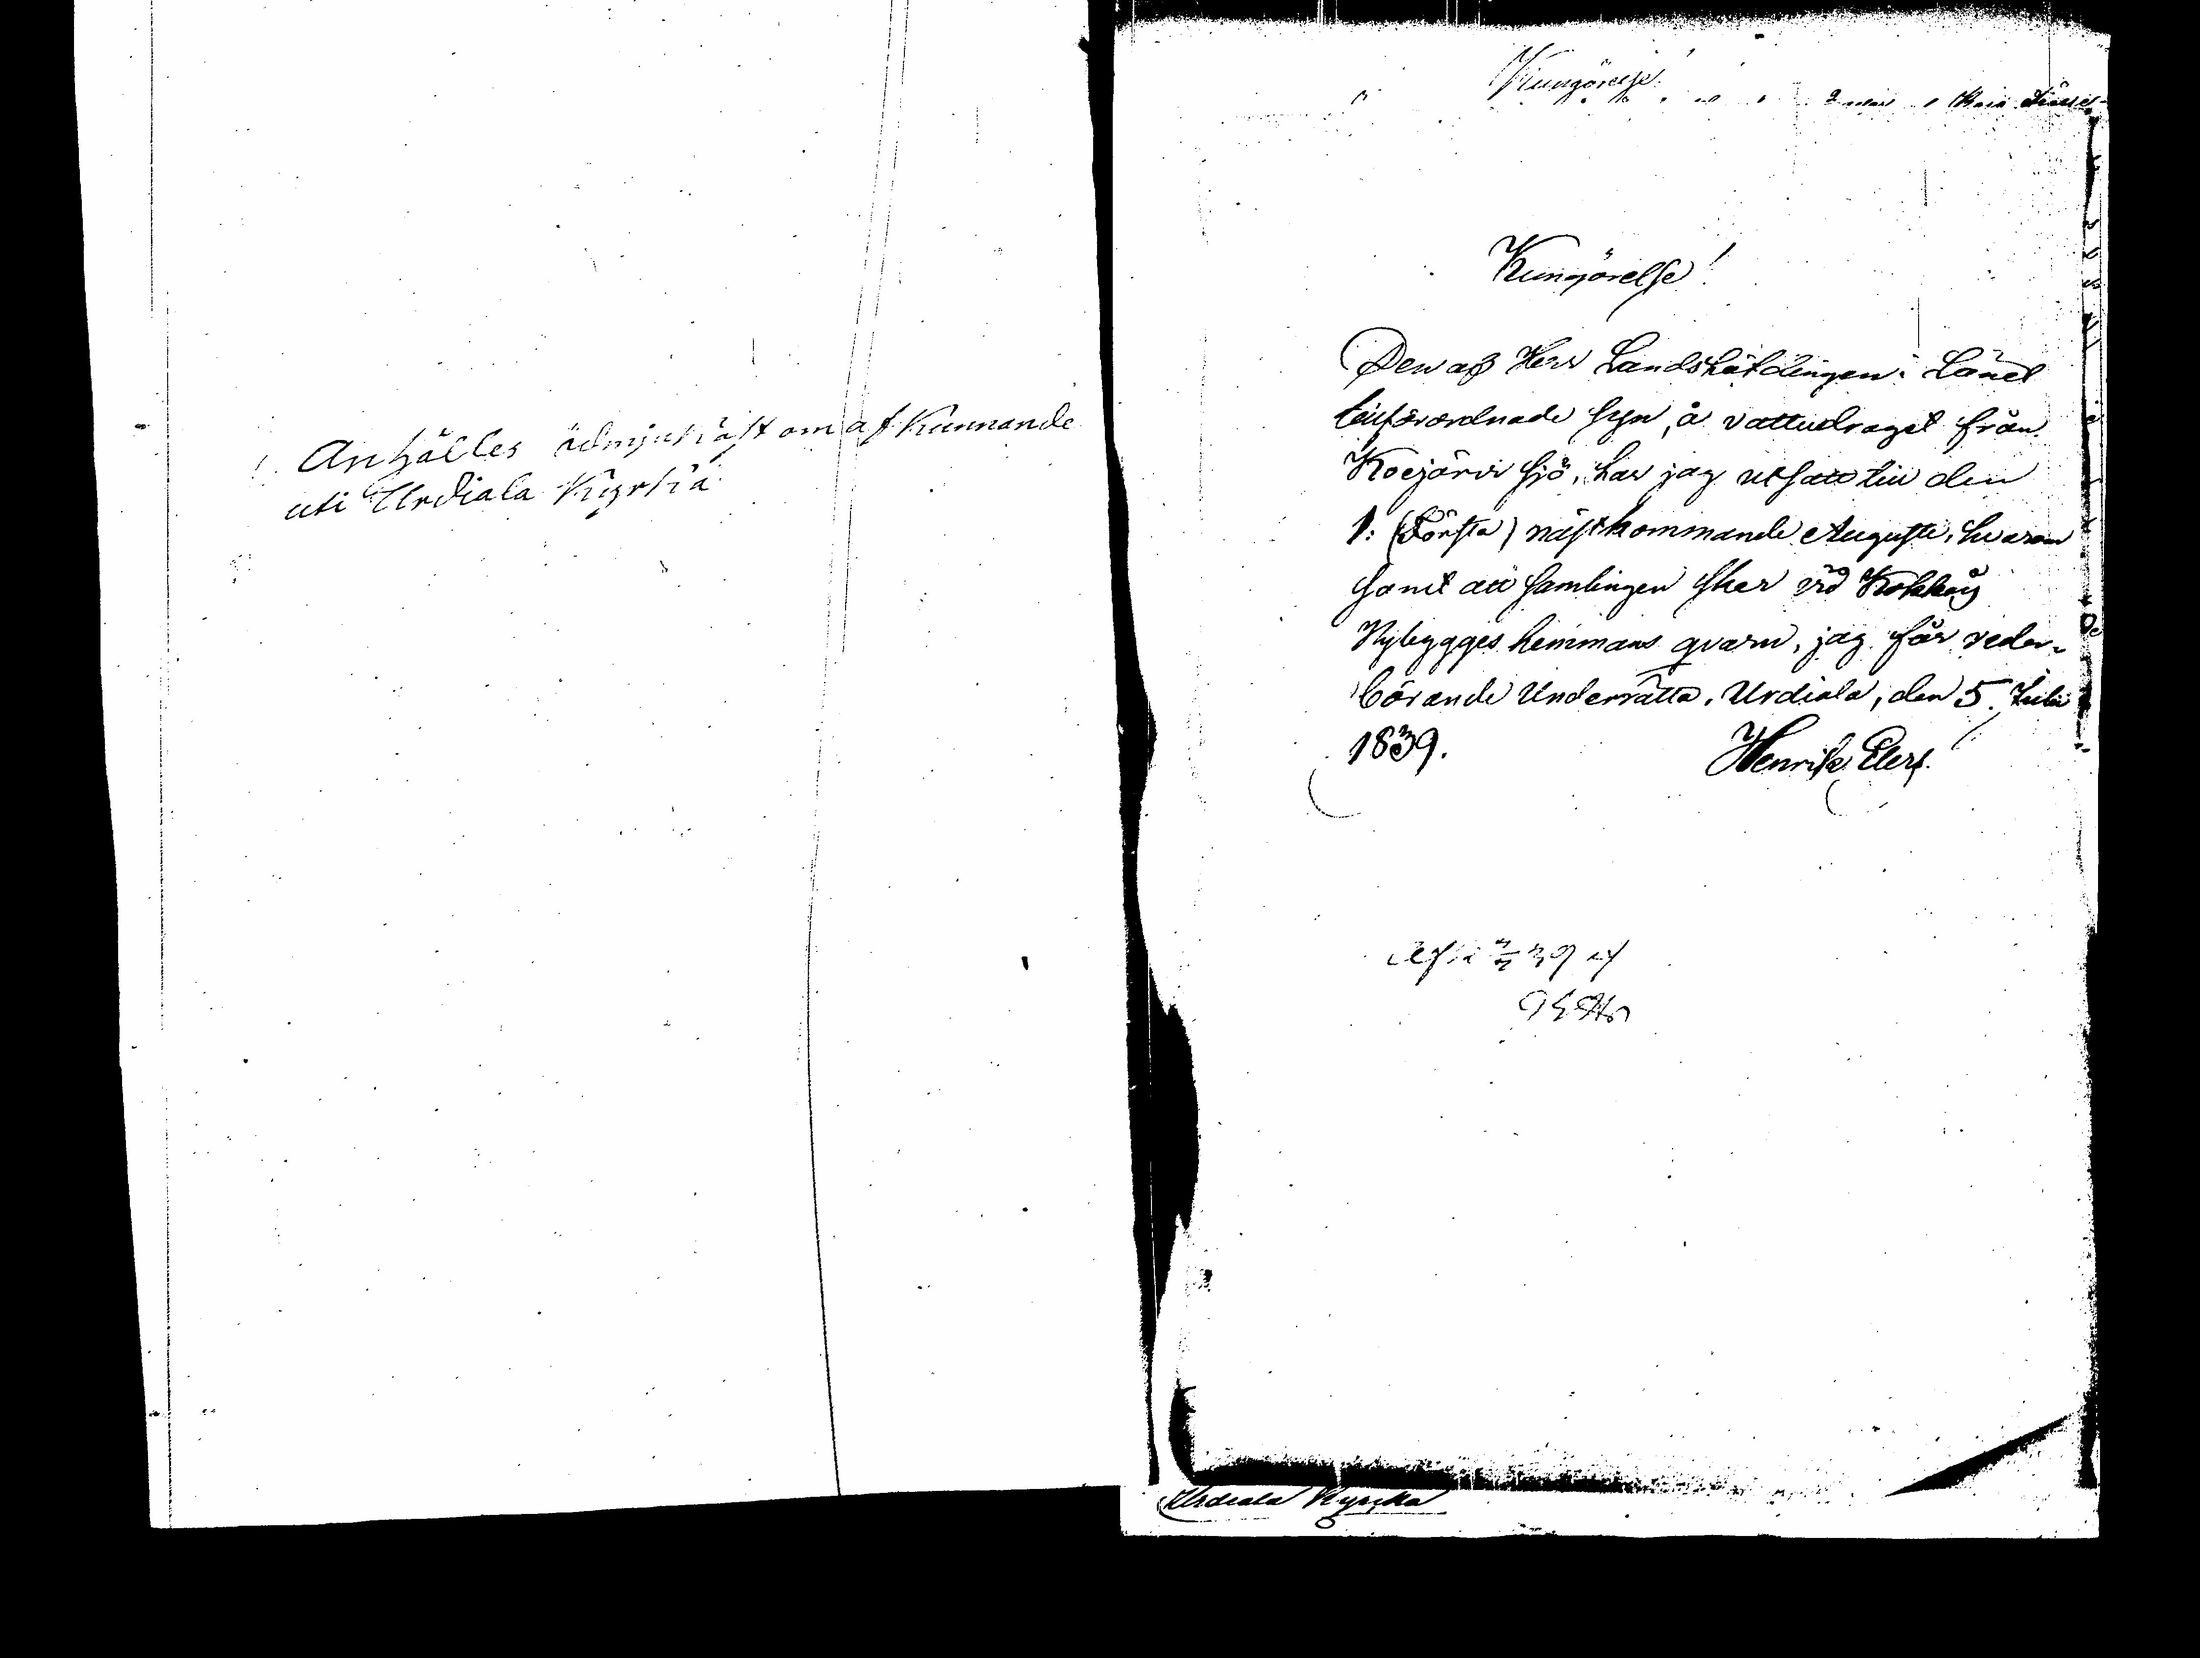 Anhålles ödmjukast om afkunnande
uti Urdiala Kyrka
Kungörelse!
Kungörelse!
Den af Herr Landshöfdingen i Länet
tillförordnade syn, å vattudraget från
Koejärvi sjö, har jag utsatt till den
1: (Första) nästkommande Augusti, hvarom
samt att samlingen sker vid
Nybygges hemmans qvarn, jag får veder-
börande Underrätta. Urdiala, den 5. Julii
1839.
Henrik Elers.
Urdiala Kyrcka